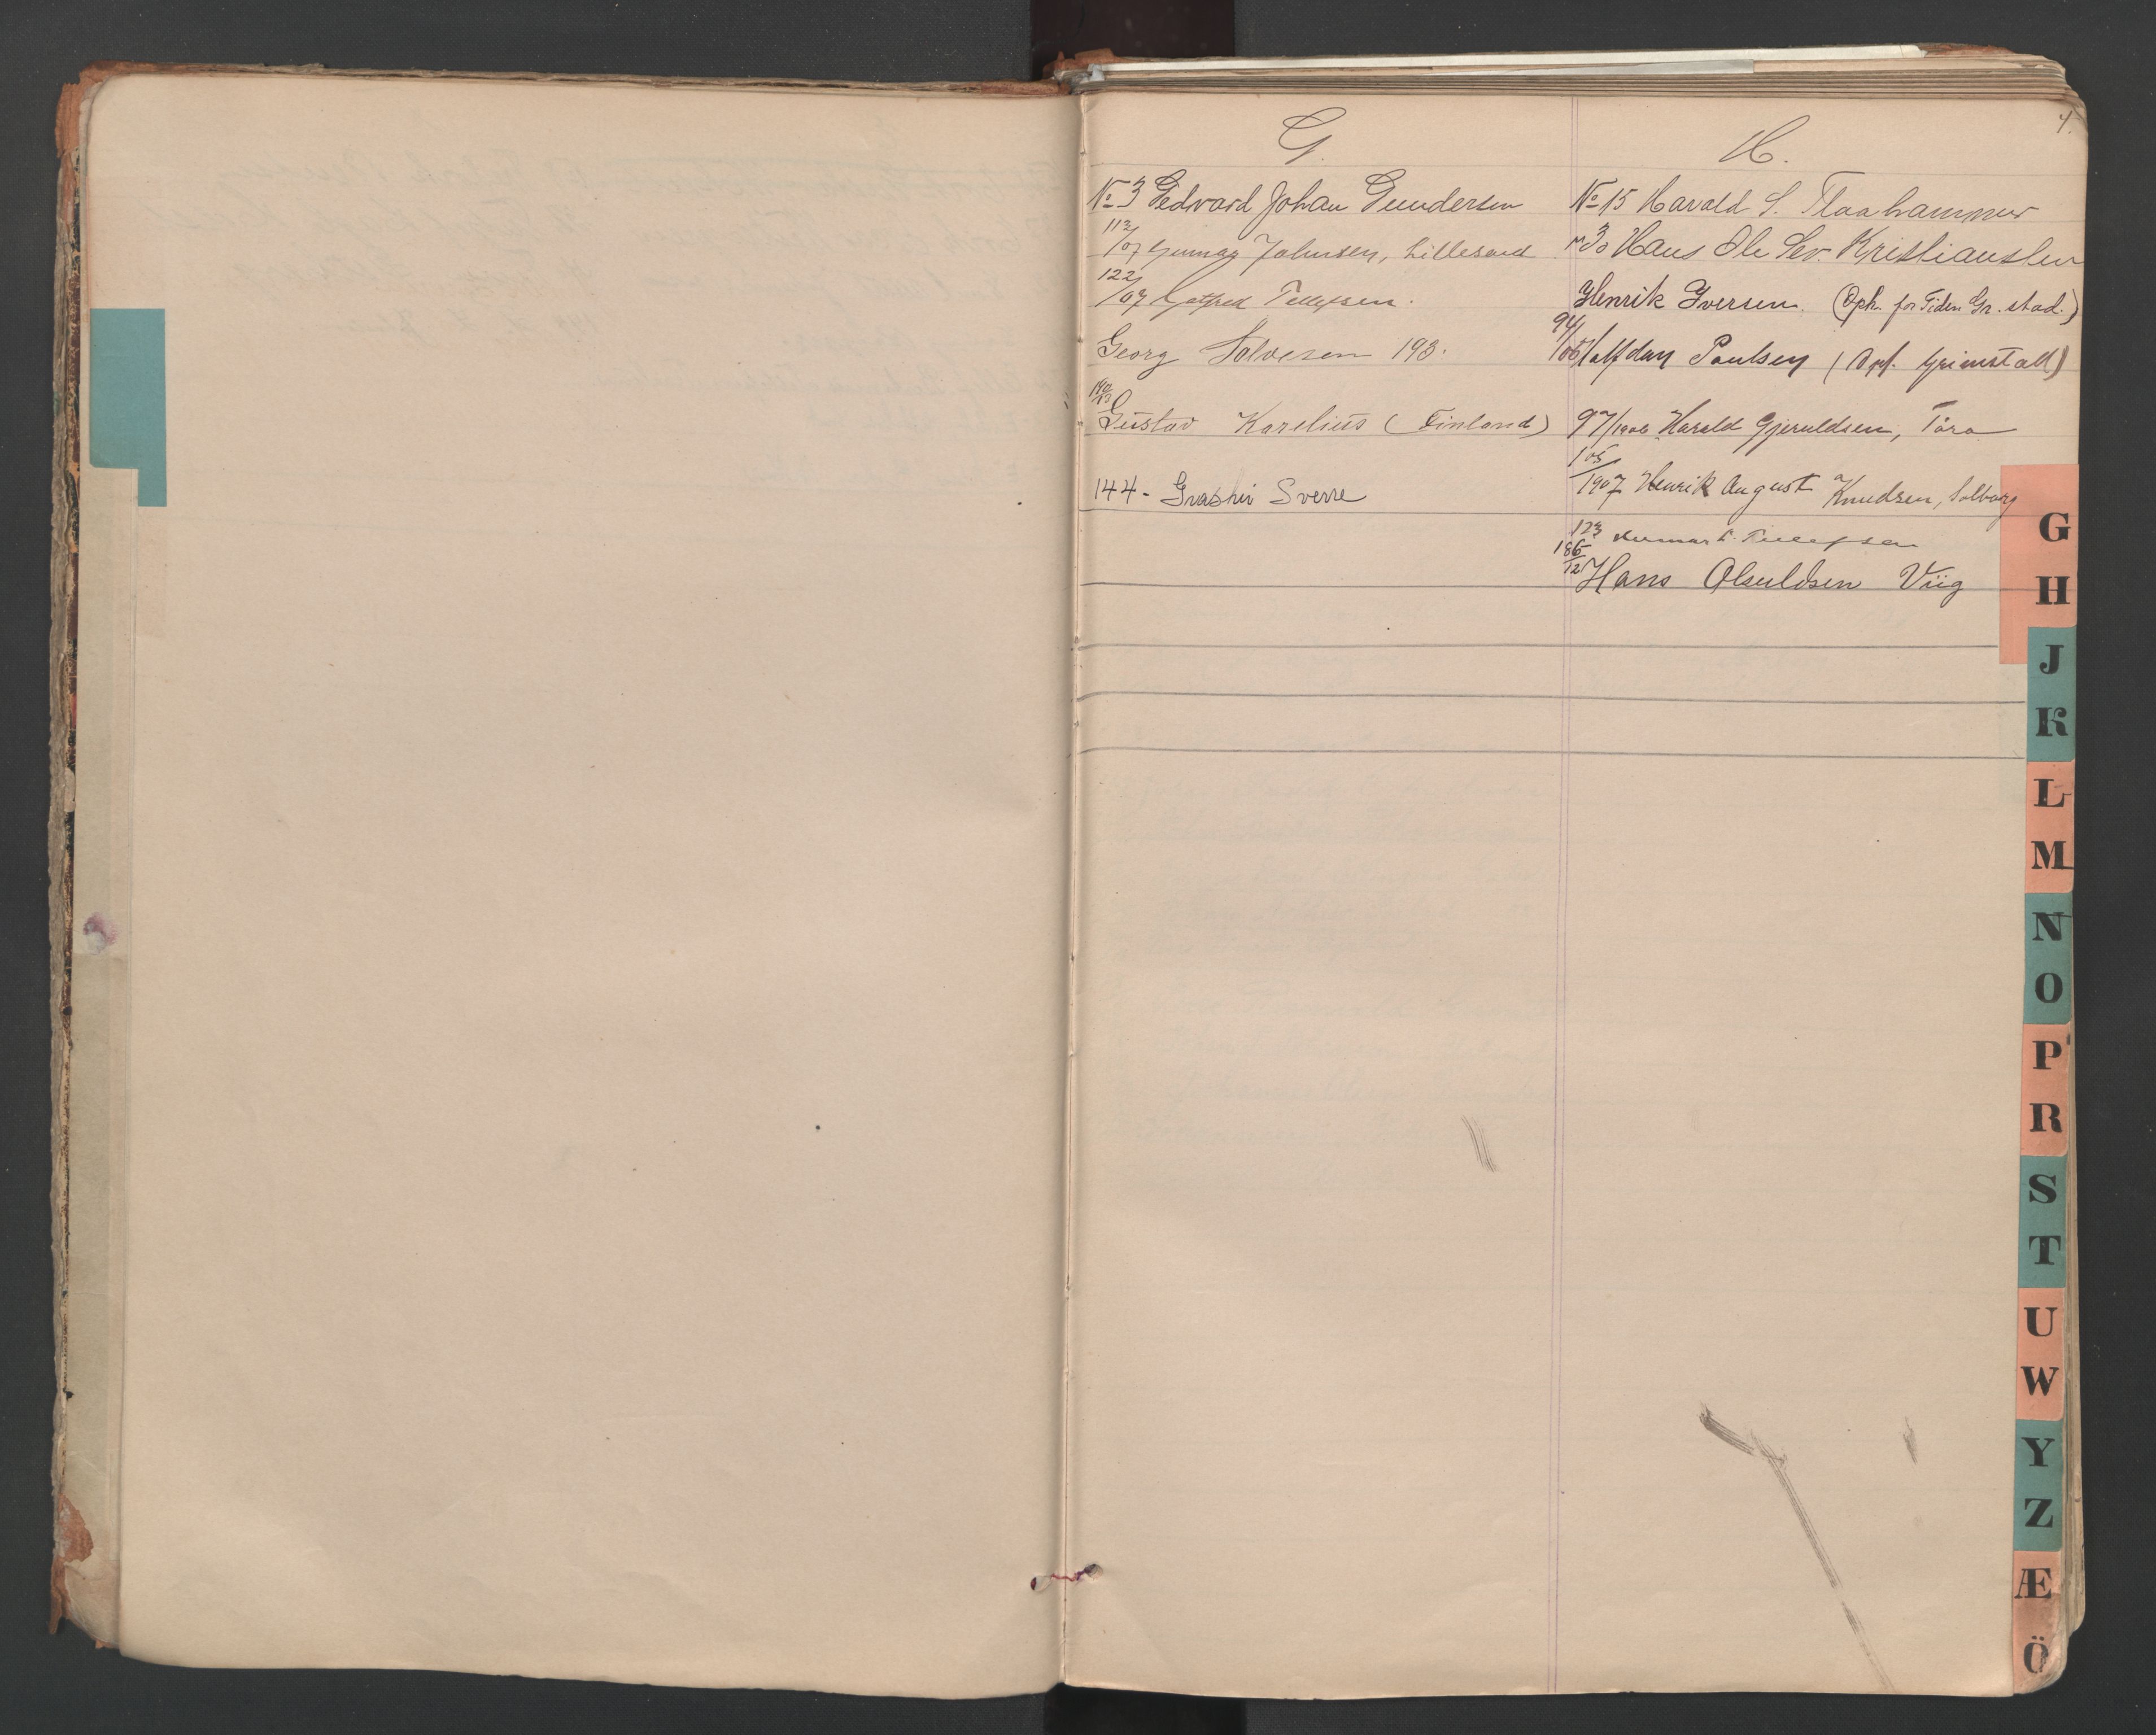 4.
G.
No 3 Gedvard Johan Gundersen
113/07 Gunnar Johnsen, Lillesand
122/07 Gotfred Tellefsen.
Georg Salvesen 193.
140/13
Gustav Karelius (Finland)
144 - Sverre
H.
No 15 Harald S. Flaahammer
No 30 Hans Ole Sev. Kristiansen
Henrik Iversen. (Oph. for Tiden Gr.stad.)
94/06 Halfdan Paulsen (Opf. Grimstad)
97/1906 Harald Gjeruldsen, Tara
105/1907 Henrik August Knudsen, Solborg
123 Tellefsen
186/12 Hans Olsuldsen Viig
G
H
J
K
L
M
N
O
P
R
S
T
U
W
Y
Z
Æ
Ö